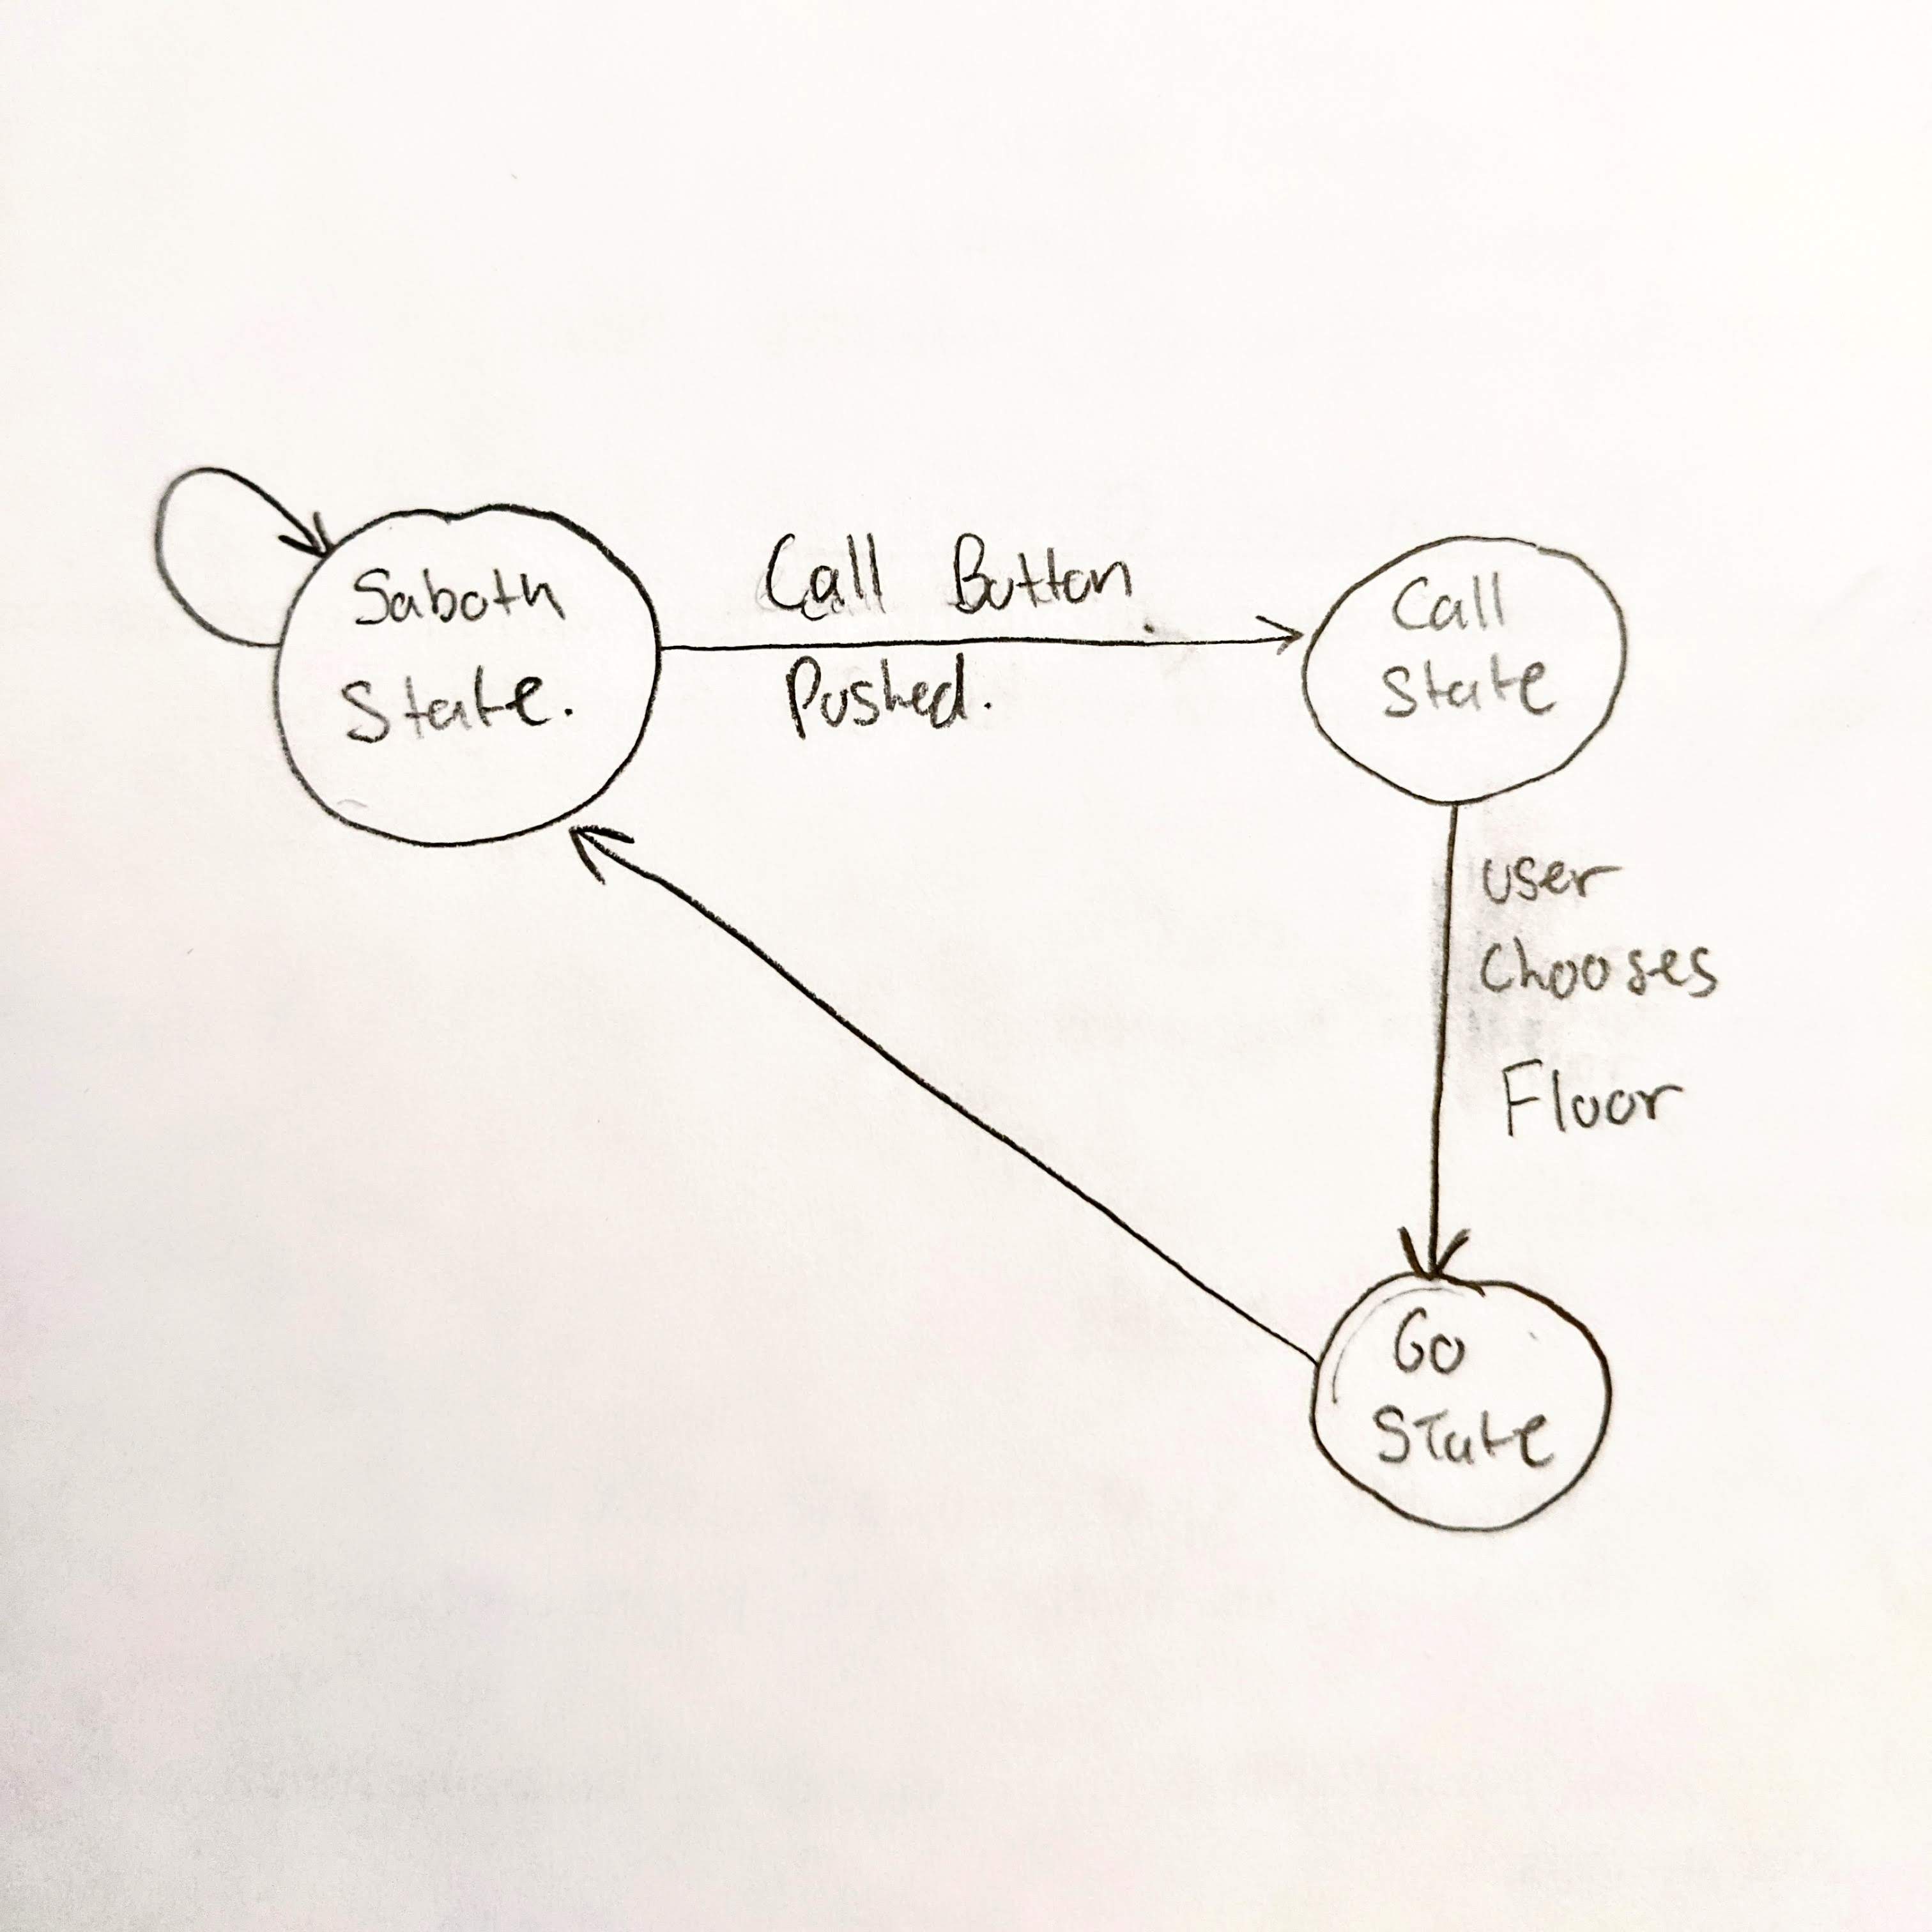 Saboth
State.
Call Button
Pushed.
Call
State
user
Chooses
Floor
Go
State